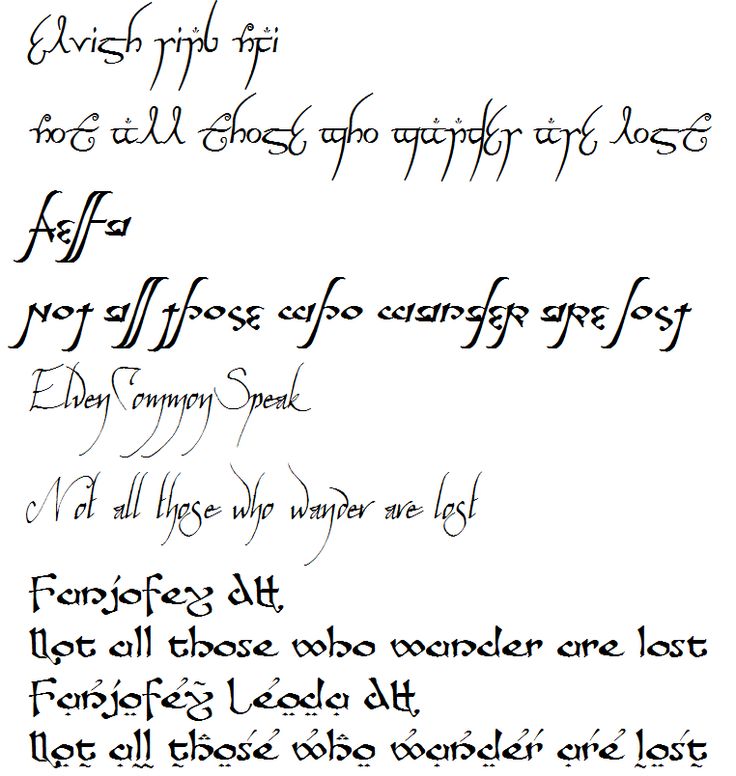 Elvish ring nfi
not all those who wander are lost
Aelfa
Not all those who wander are lost
ElvenCommonSpeak
Not all those who wander are lost
Fanjofey AH
Not all those who wander are lost
Fanjofey Leoda AH
Not all those who wander are lost